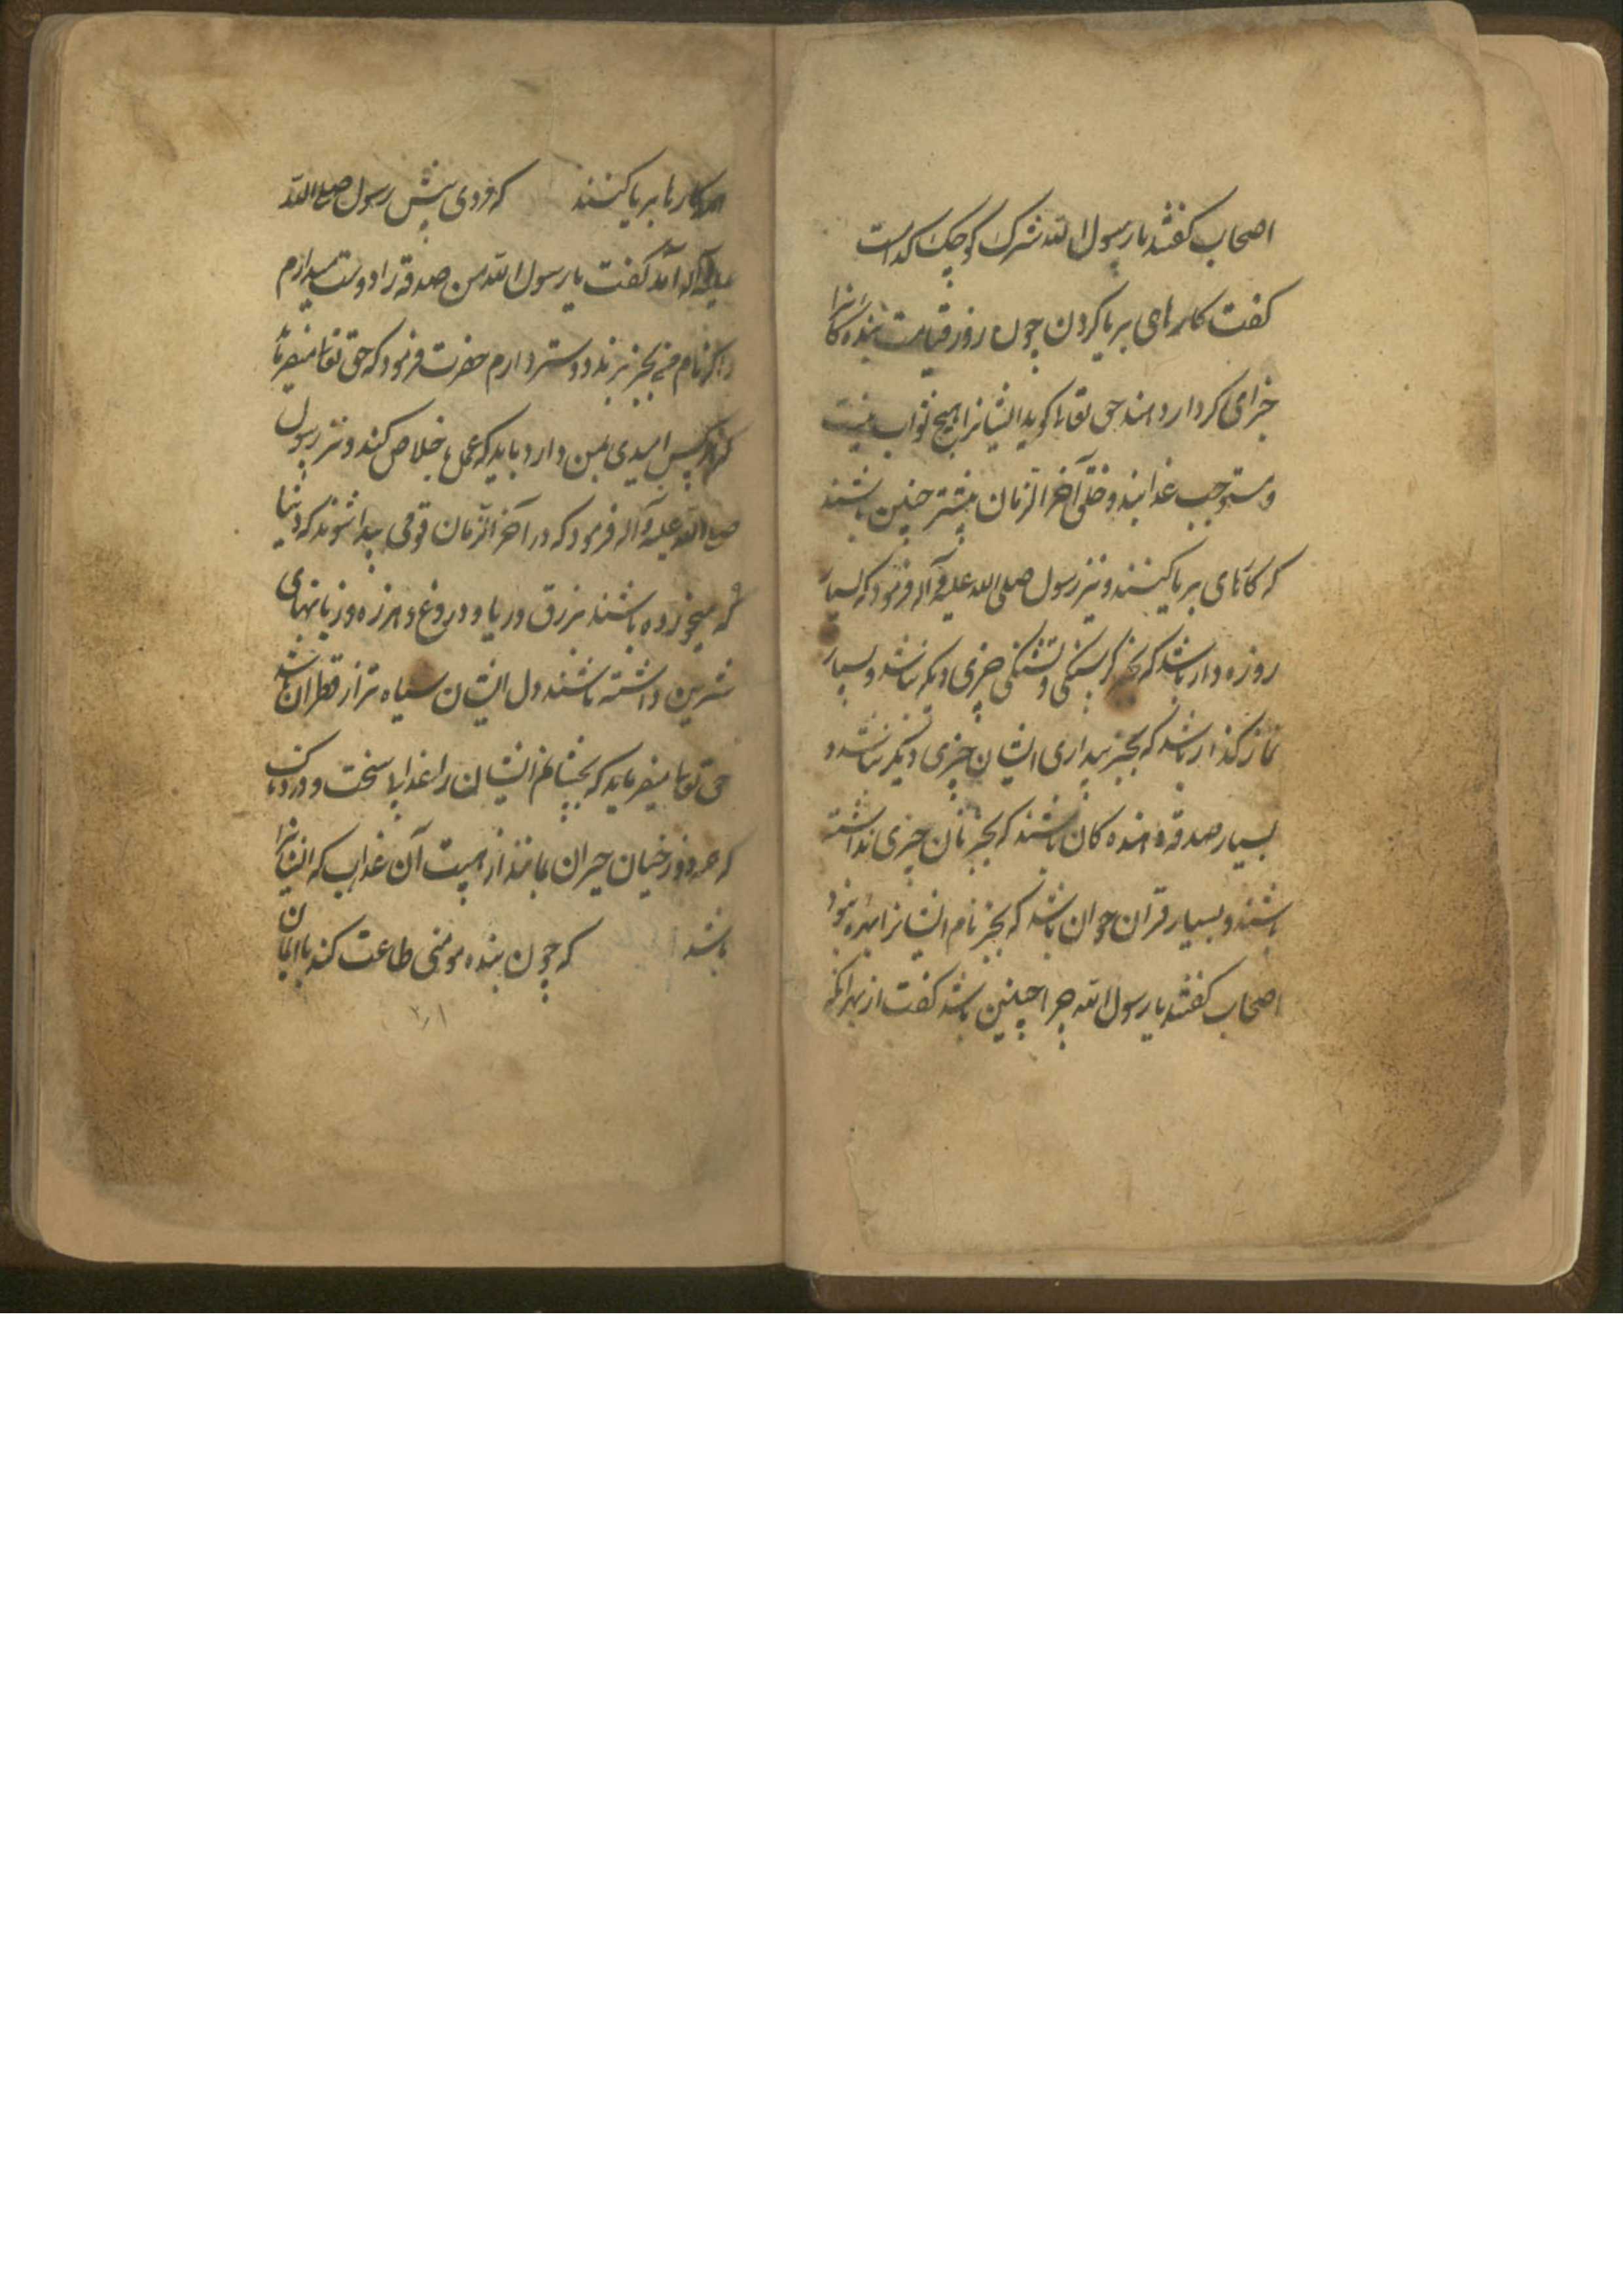 اصحاب کفتند یا رسول الله شرک کوچک کدام است
کفت کارهای بریا کردن چون روز قیامت بنده کانرا
جزای کردار دهند حق تعالی کوید ایشانرا هیچ ثواب نیست
و مستوجب عذابند و خلق آخر الزمان بیشتر چنین باشند
که کارهای بریا کنند و نیز رسول صلی الله علیه و آله فرمود که بسیار
روزه دار باشد که بجز کرسنکی و تشنکی چیزی دیکر نباشد و بسیار
نماز کذار باشد که بجز بیداری ایشان چیزی دیکر نباشد و
بسیار صدقه دهنده کان باشند که بجز نان چیزی نداشته
باشند و بسیار قرآن خوان باشد که بجز نام ایشانرا بهره نبود
اصحاب کفتند یا رسول الله چرا چنین باشد کفت از بهر انکه
کارها بریا کنند که مردی پیش رسول صلی الله
علیه و آله آمد کفت یا رسول الله من صدقه را دوست میدارم
و اکر نام من بخیر برند دوستر دارم حضرت فرمود که حق تعالی میفرماید
که هر کس امیدی بمن دارد باید که عمل خلاص کند و نیز رسول
صلی الله علیه و آله فرمود که در آخر الزمان قومی پیدا شوند که دنیا
میخورده باشند بزرق و ریا و دروغ و هرزه و زبانهای
شیرین داشته باشند و دل ایشان سیاه تر از قطران باشد
حق تعالی میفرماید که بچشانم ایشان را عذابی سخت و دردناک
که همه دوزخیان حیران بمانند از هیبت آن عذاب که ایشانرا
باشد که چون بنده مومنی طاعت کند با ایمان